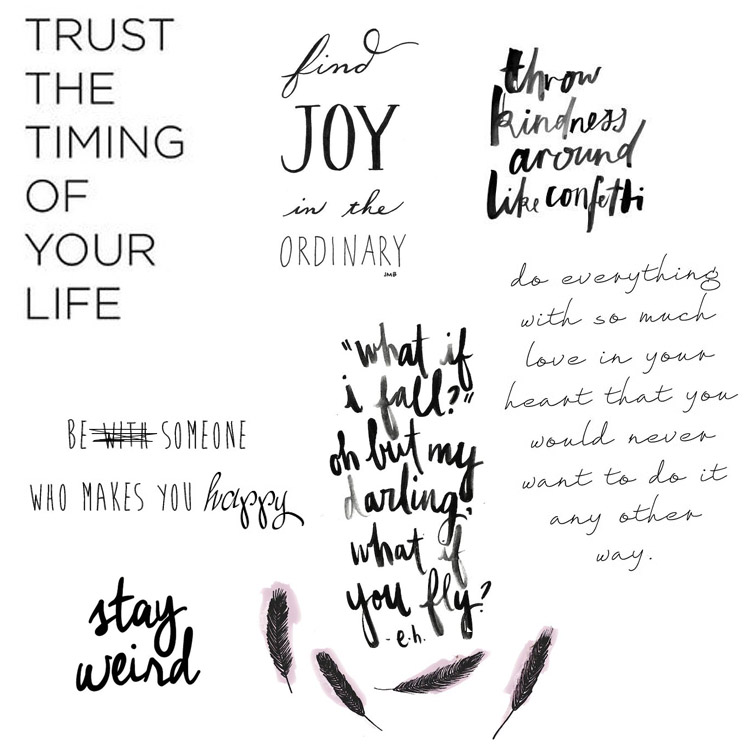 TRUST
THE
TIMING
OF
YOUR
LIFE
find
JOY
in the
ORDINARY
JMB
throw
kindness
around
like confetti
do everything
with so much
love in your
heart that you
would never
want to do it
any other
way.
"what if
i fall?"
oh but my
darling,
what if
you fly?
- e.h.
BE WITH SOMEONE
WHO MAKES YOU happy
stay
weird